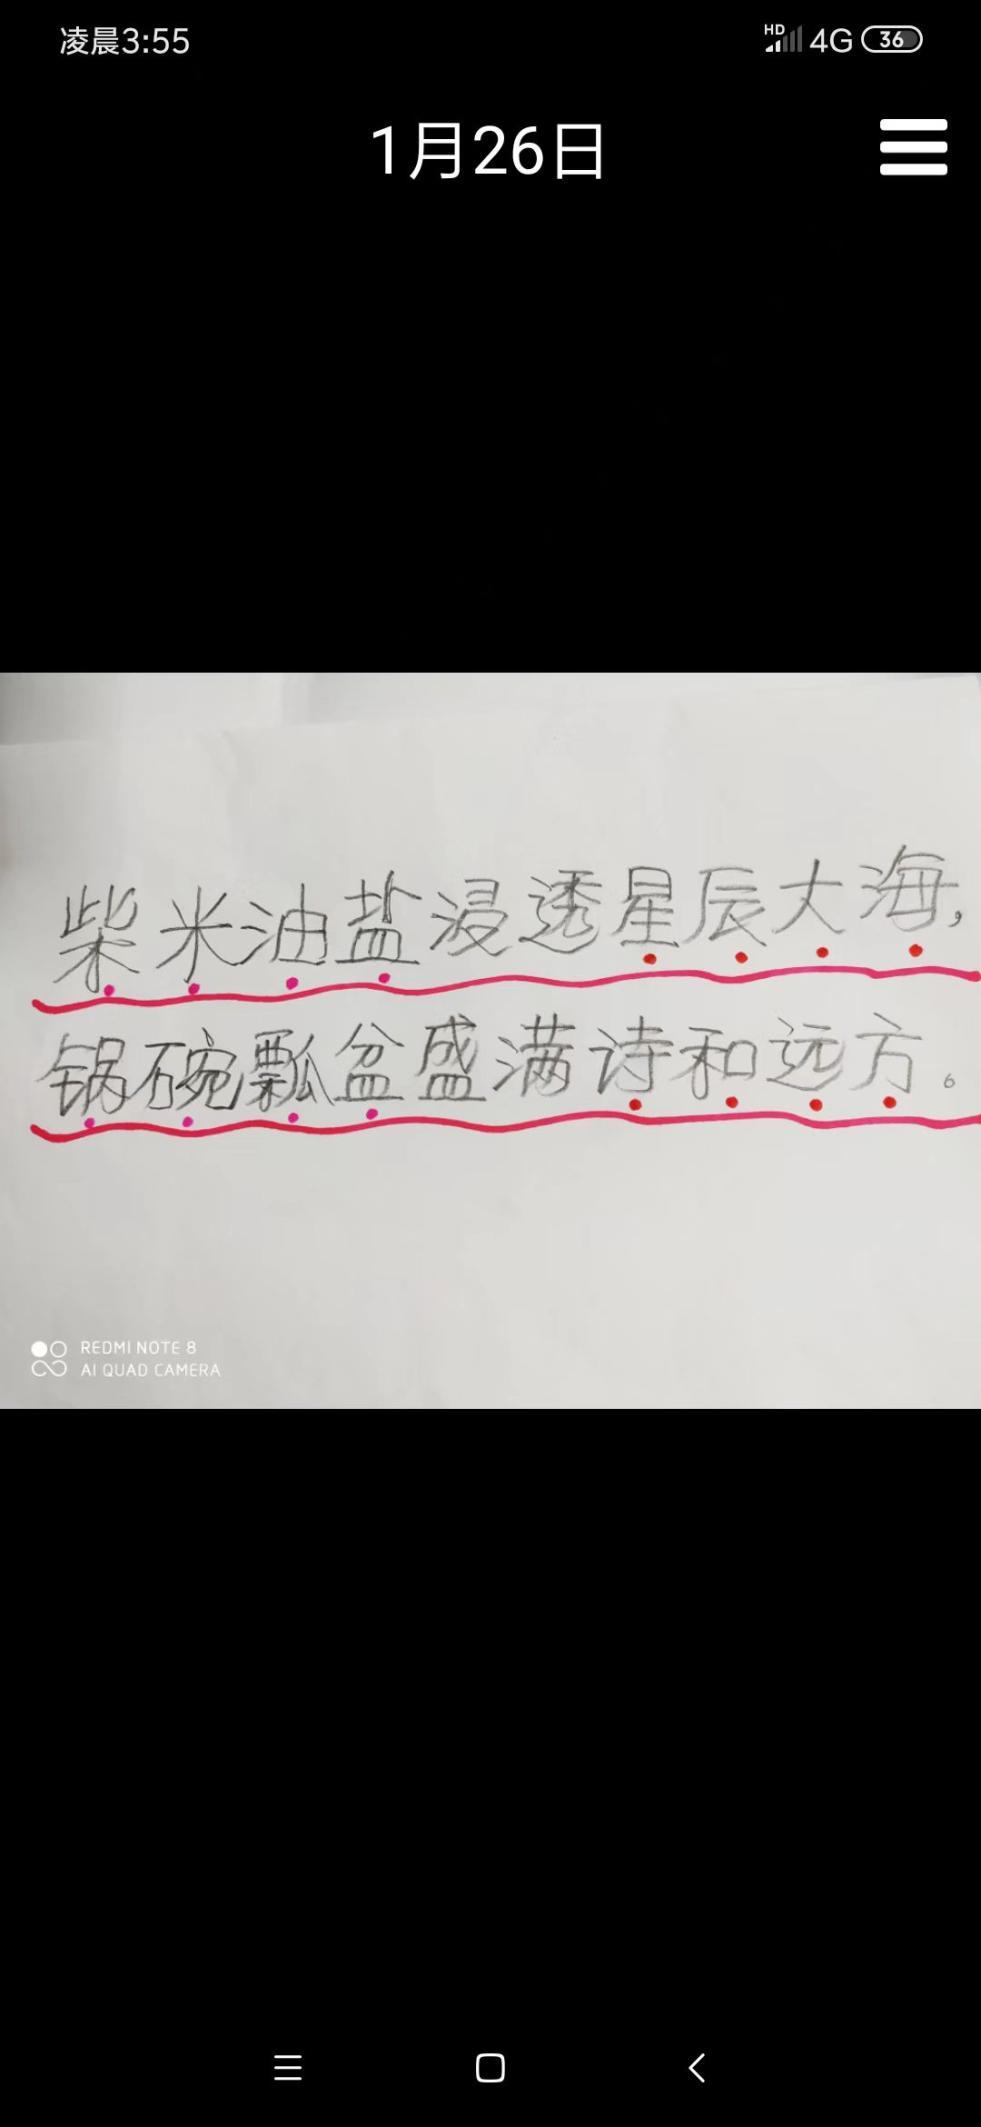 凌晨3:55 HD 4G 36
1月26日
柴米油盐浸透星辰大海,
锅碗瓢盆盛满诗和远方。
REDMI NOTE 8
AI QUAD CAMERA